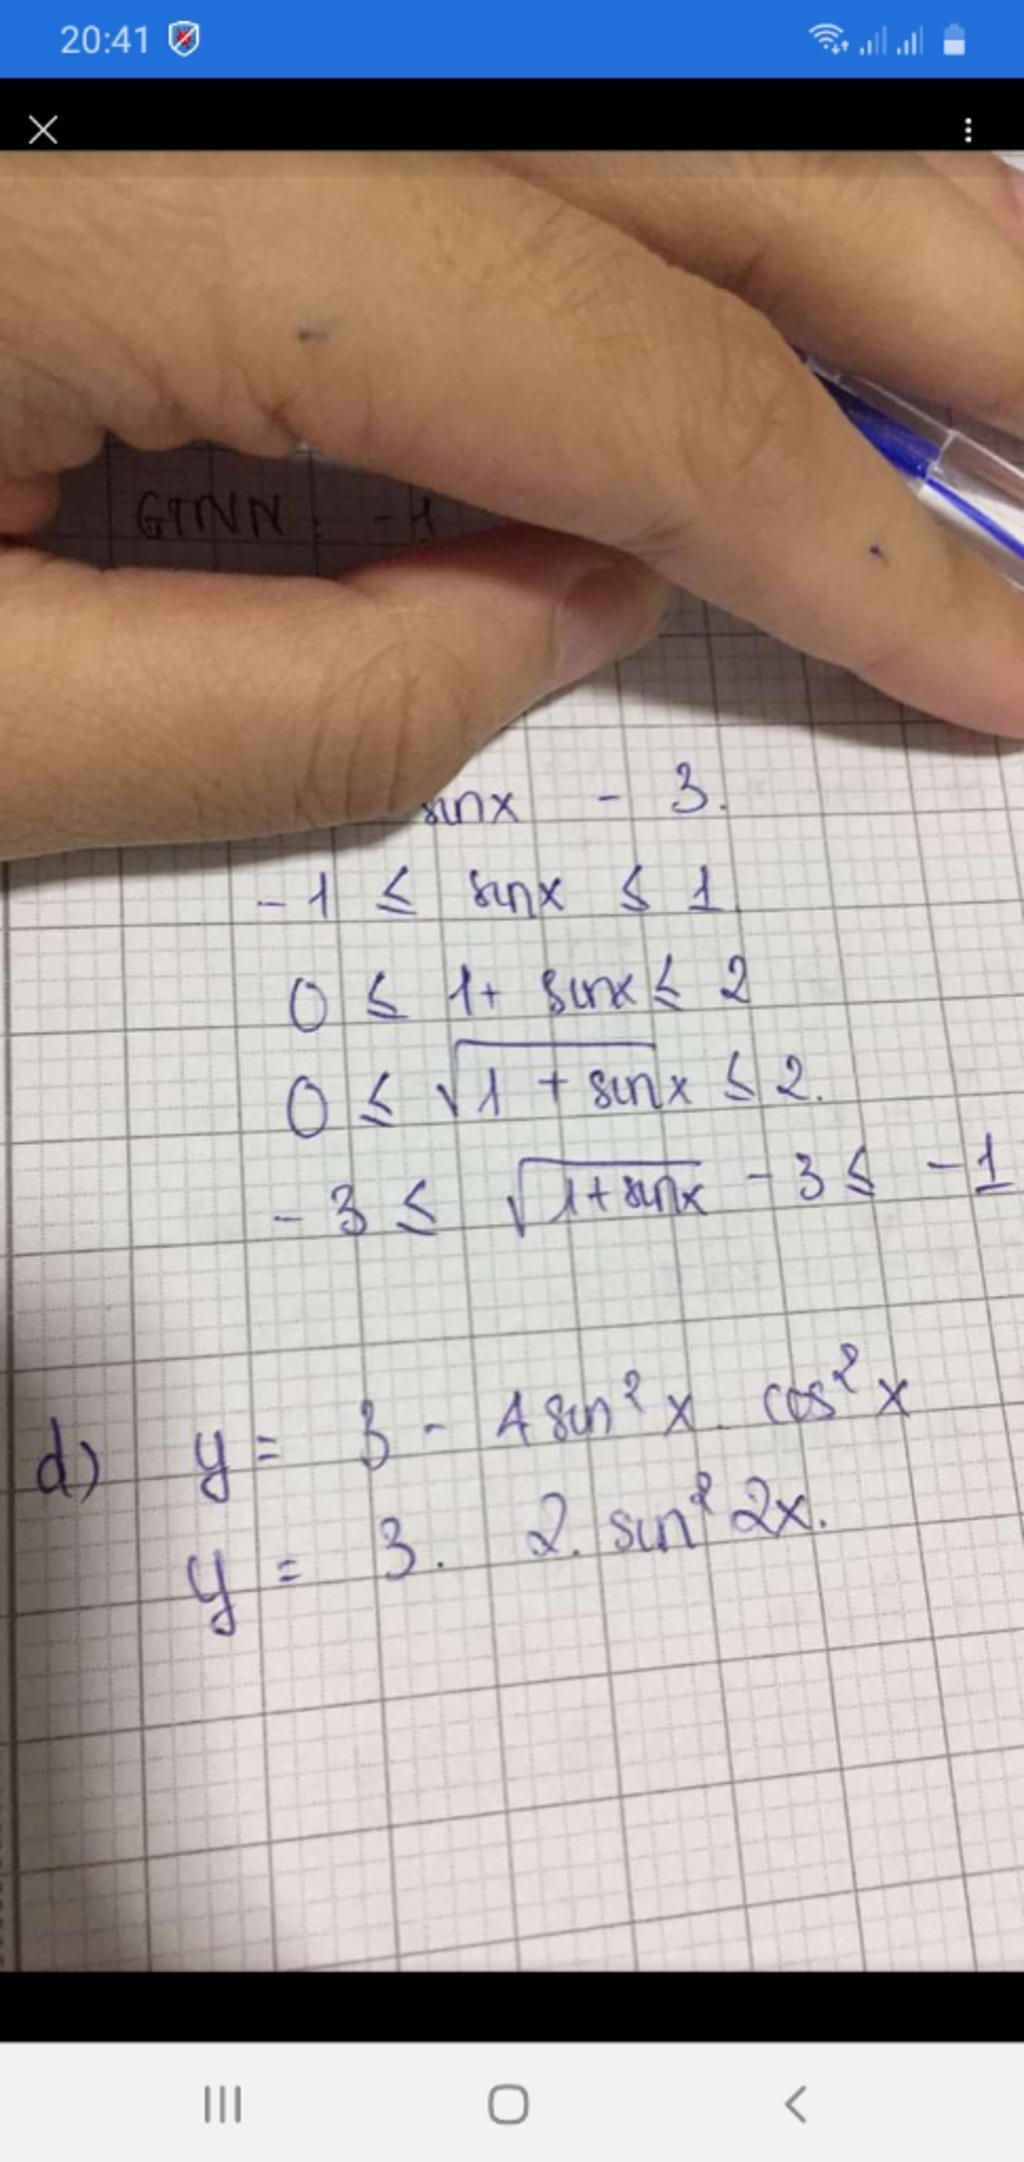 20:41
GTNN: -1
sinx - 3.
-1 ≤ sinx ≤ 1
0 ≤ 1+ sinx ≤ 2
0 ≤ √1 + sinx ≤ 2.
-3 ≤ √1+sinx - 3 ≤ -1
d) y = 3 - 4sin²x. cos²x
y = 3. 2. sin²2x.